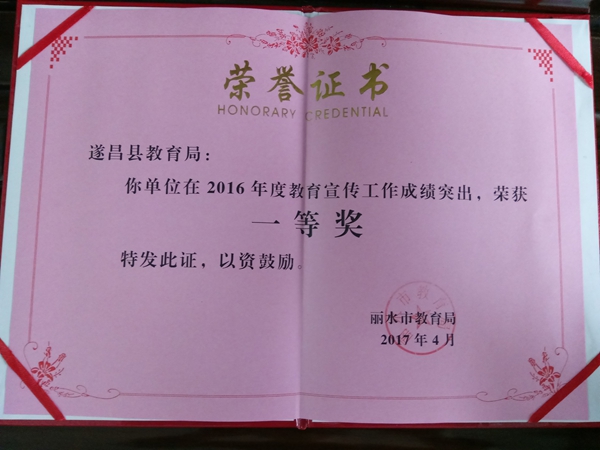 荣誉证书
HONORARY CREDENTIAL
遂昌县教育局：
你单位在 2016 年度教育宣传工作成绩突出，荣获
一等奖
特发此证，以资鼓励。
丽水市教育局
2017 年 4 月